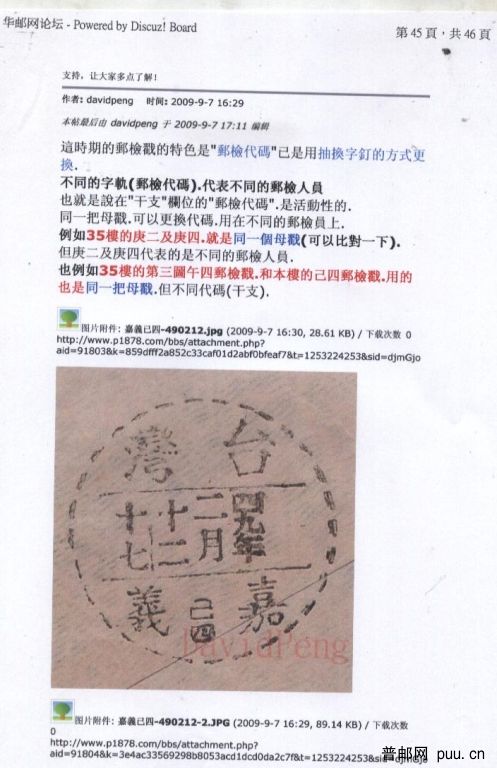 华邮网论坛 - Powered by Discuz! Board
第 45 頁，共 46 頁
支持，让大家多点了解！
作者: davidpeng 时间: 2009-9-7 16:29
本帖最后由 davidpeng 于 2009-9-7 17:11 编辑
這時期的郵檢戳的特色是"郵檢代碼"己是用抽換字釘的方式更
換.
不同的字軌(郵檢代碼).代表不同的郵檢人員
也就是說在"干支"欄位的"郵檢代碼".是活動性的.
同一把母戳.可以更換代碼.用在不同的郵檢員上.
例如35樓的庚二及庚四.就是同一個母戳(可以比對一下).
但庚二及庚四代表的是不同的郵檢人員.
也例如35樓的第三圖午四郵檢戳.和本樓的己四郵檢戳.用的
也是同一把母戳.但不同代碼(干支).
图片附件: 嘉義已四-490212.jpg (2009-9-7 16:30, 28.61 KB) / 下载次数 0
http://www.p1878.com/bbs/attachment.php?
aid=91803&k=859dfff2a852c33caf01d2abf0bfeaf7&t=1253224253&sid=djmGjo
台灣
四九年
二月
十二
十七
嘉義
己四
DavidPeng
图片附件: 嘉義已四-490212-2.JPG (2009-9-7 16:29, 89.14 KB) / 下载次数
0
http://www.p1878.com/bbs/attachment.php?
aid=91804&k=3e4ac33569298b8053acd1dcd0da2c7f&t=1253224253&sid=djmGjo
普邮网 puu.cn